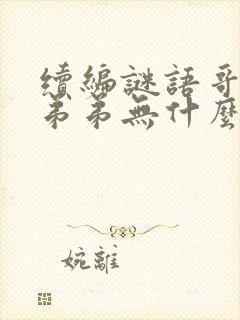 續編謎語哥
弟弟無什麼
婉離